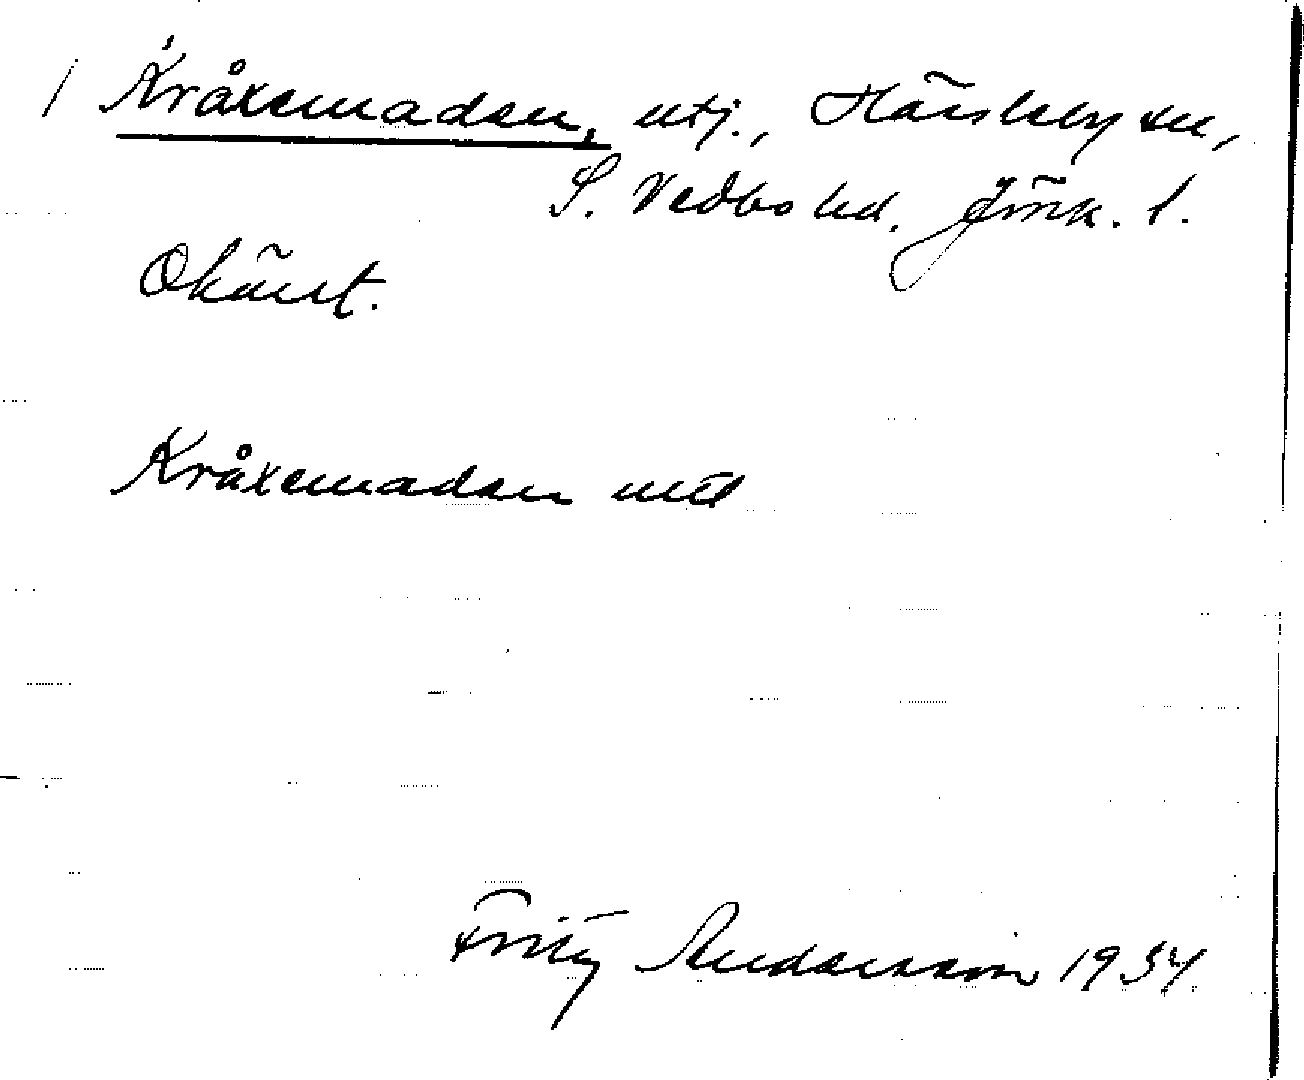 Kråxemaden, utj., Hässleby sn,
S. Vedbo hd. Jönk. l.
Okänt.
Kråxemaden
Fritz Andersson 1934.